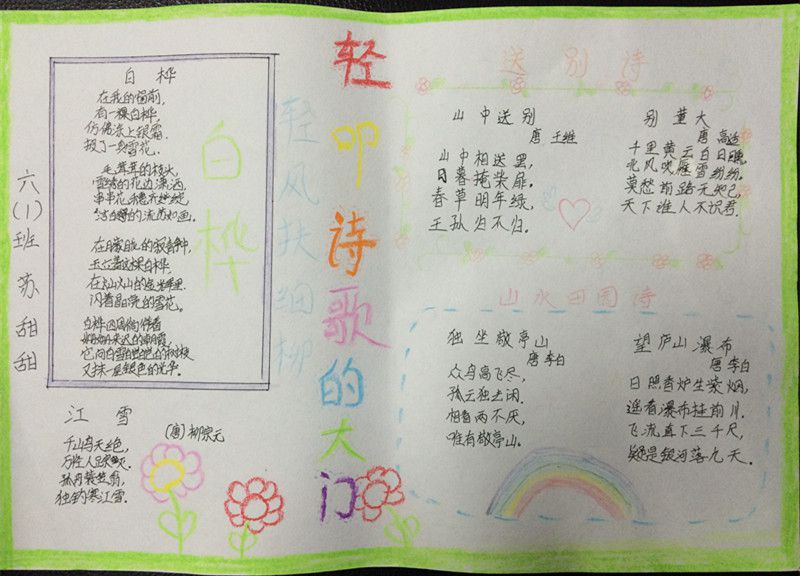 六(1)班 苏甜甜
白桦
在我的窗前,
有一棵白桦,
仿佛涂上银霜,
披了一身雪花.
毛茸茸的枝头,
雪绣的花边潇洒,
串串花穗齐绽,
洁白的流苏如画.
在朦胧的寂静中,
玉立着这棵白桦,
在灿灿的金晖里
闪着晶亮的雪花.
白桦四周徜徉着
姗姗来迟的朝霞,
它向白雪皑皑的树枝
又抹一层银色的光华.
白桦
江雪
(唐)柳宗元
千山鸟飞绝,
万径人踪灭.
孤舟蓑笠翁,
独钓寒江雪.
轻风扶细柳
轻叩诗歌的大门
送别诗
山中送别
唐 王维
山中相送罢,
日暮掩柴扉.
春草明年绿,
王孙归不归.
别董大
唐 高适
千里黄云白日曛,
北风吹雁雪纷纷.
莫愁前路无知己,
天下谁人不识君.
山水田园诗
独坐敬亭山
唐李白
众鸟高飞尽,
孤云独去闲.
相看两不厌,
唯有敬亭山.
望庐山瀑布
唐李白
日照香炉生紫烟,
遥看瀑布挂前川.
飞流直下三千尺,
疑是银河落九天.